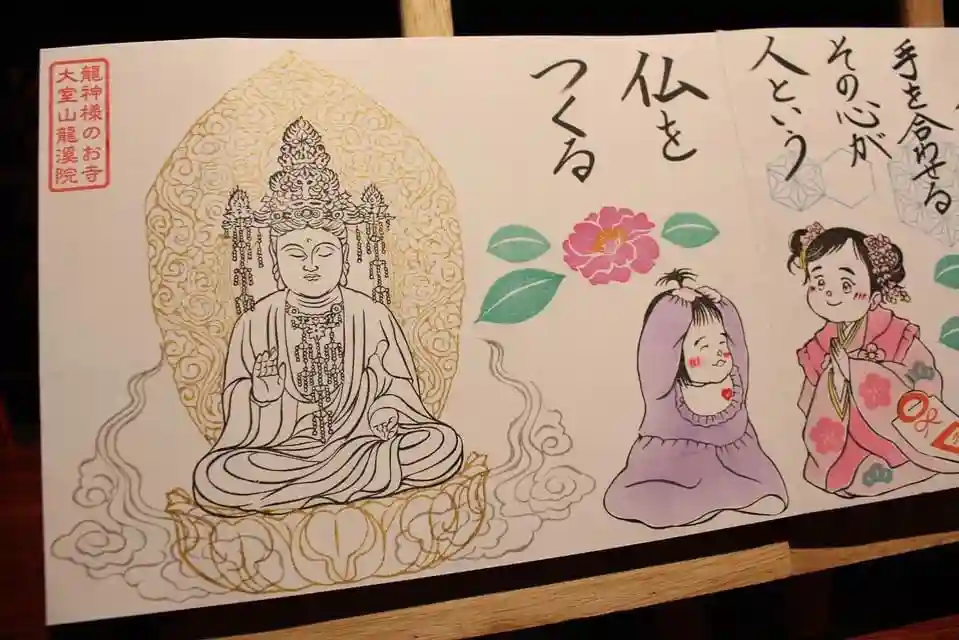 手を合わせる
その心が
人という
仏を
つくる
龍神様のお寺
大室山龍溪院